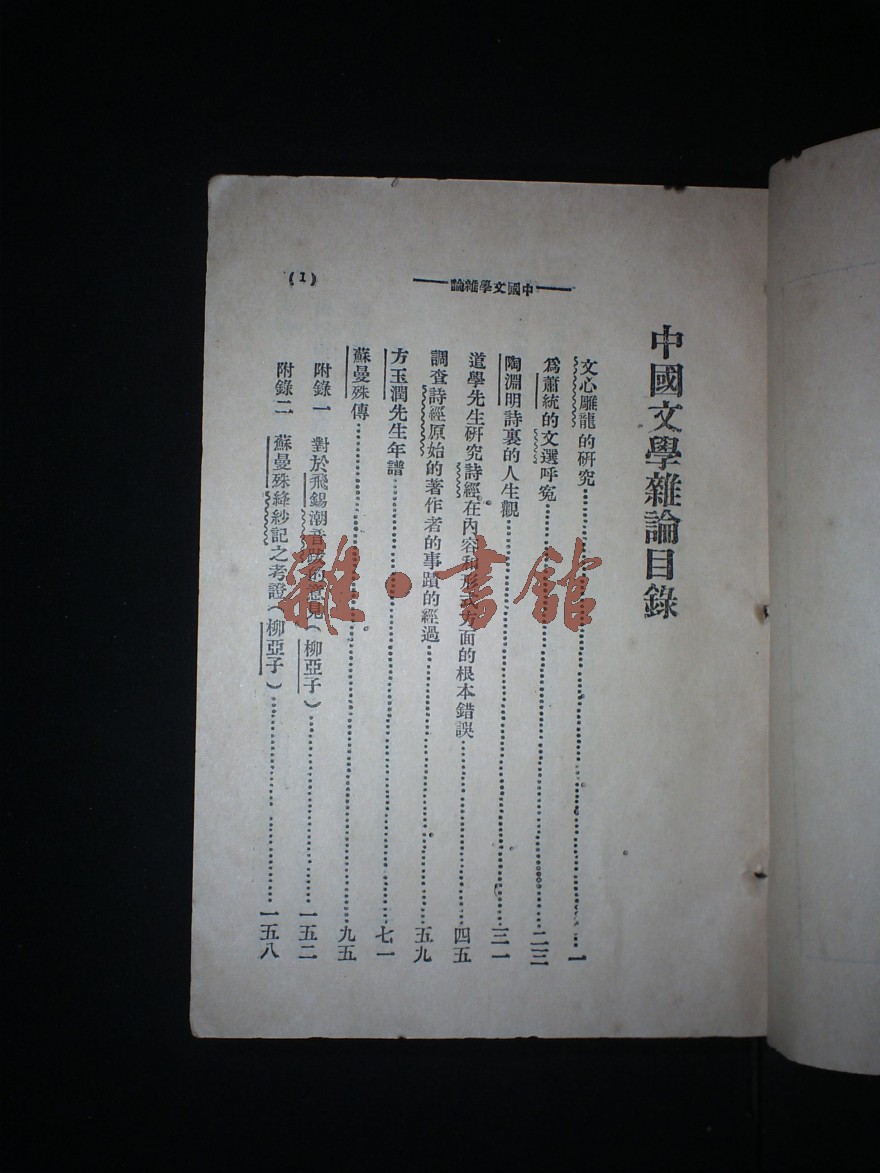 中國文學雜論
(1)
中國文學雜論目錄
文心雕龍的研究……一
爲蕭統的文選呼寃……二三
陶淵明詩裏的人生觀……三一
道學先生研究詩經在內容和形式方面的根本錯誤……四五
調查詩經原始的著作者的事蹟的經過……五九
方玉潤先生年譜……七一
蘇曼殊傳……九五
附錄一 對於飛錫潮音跋的意見(柳亞子)……一五二
附錄二 蘇曼殊絳紗記之考證(柳亞子)……一五八
雜·書館